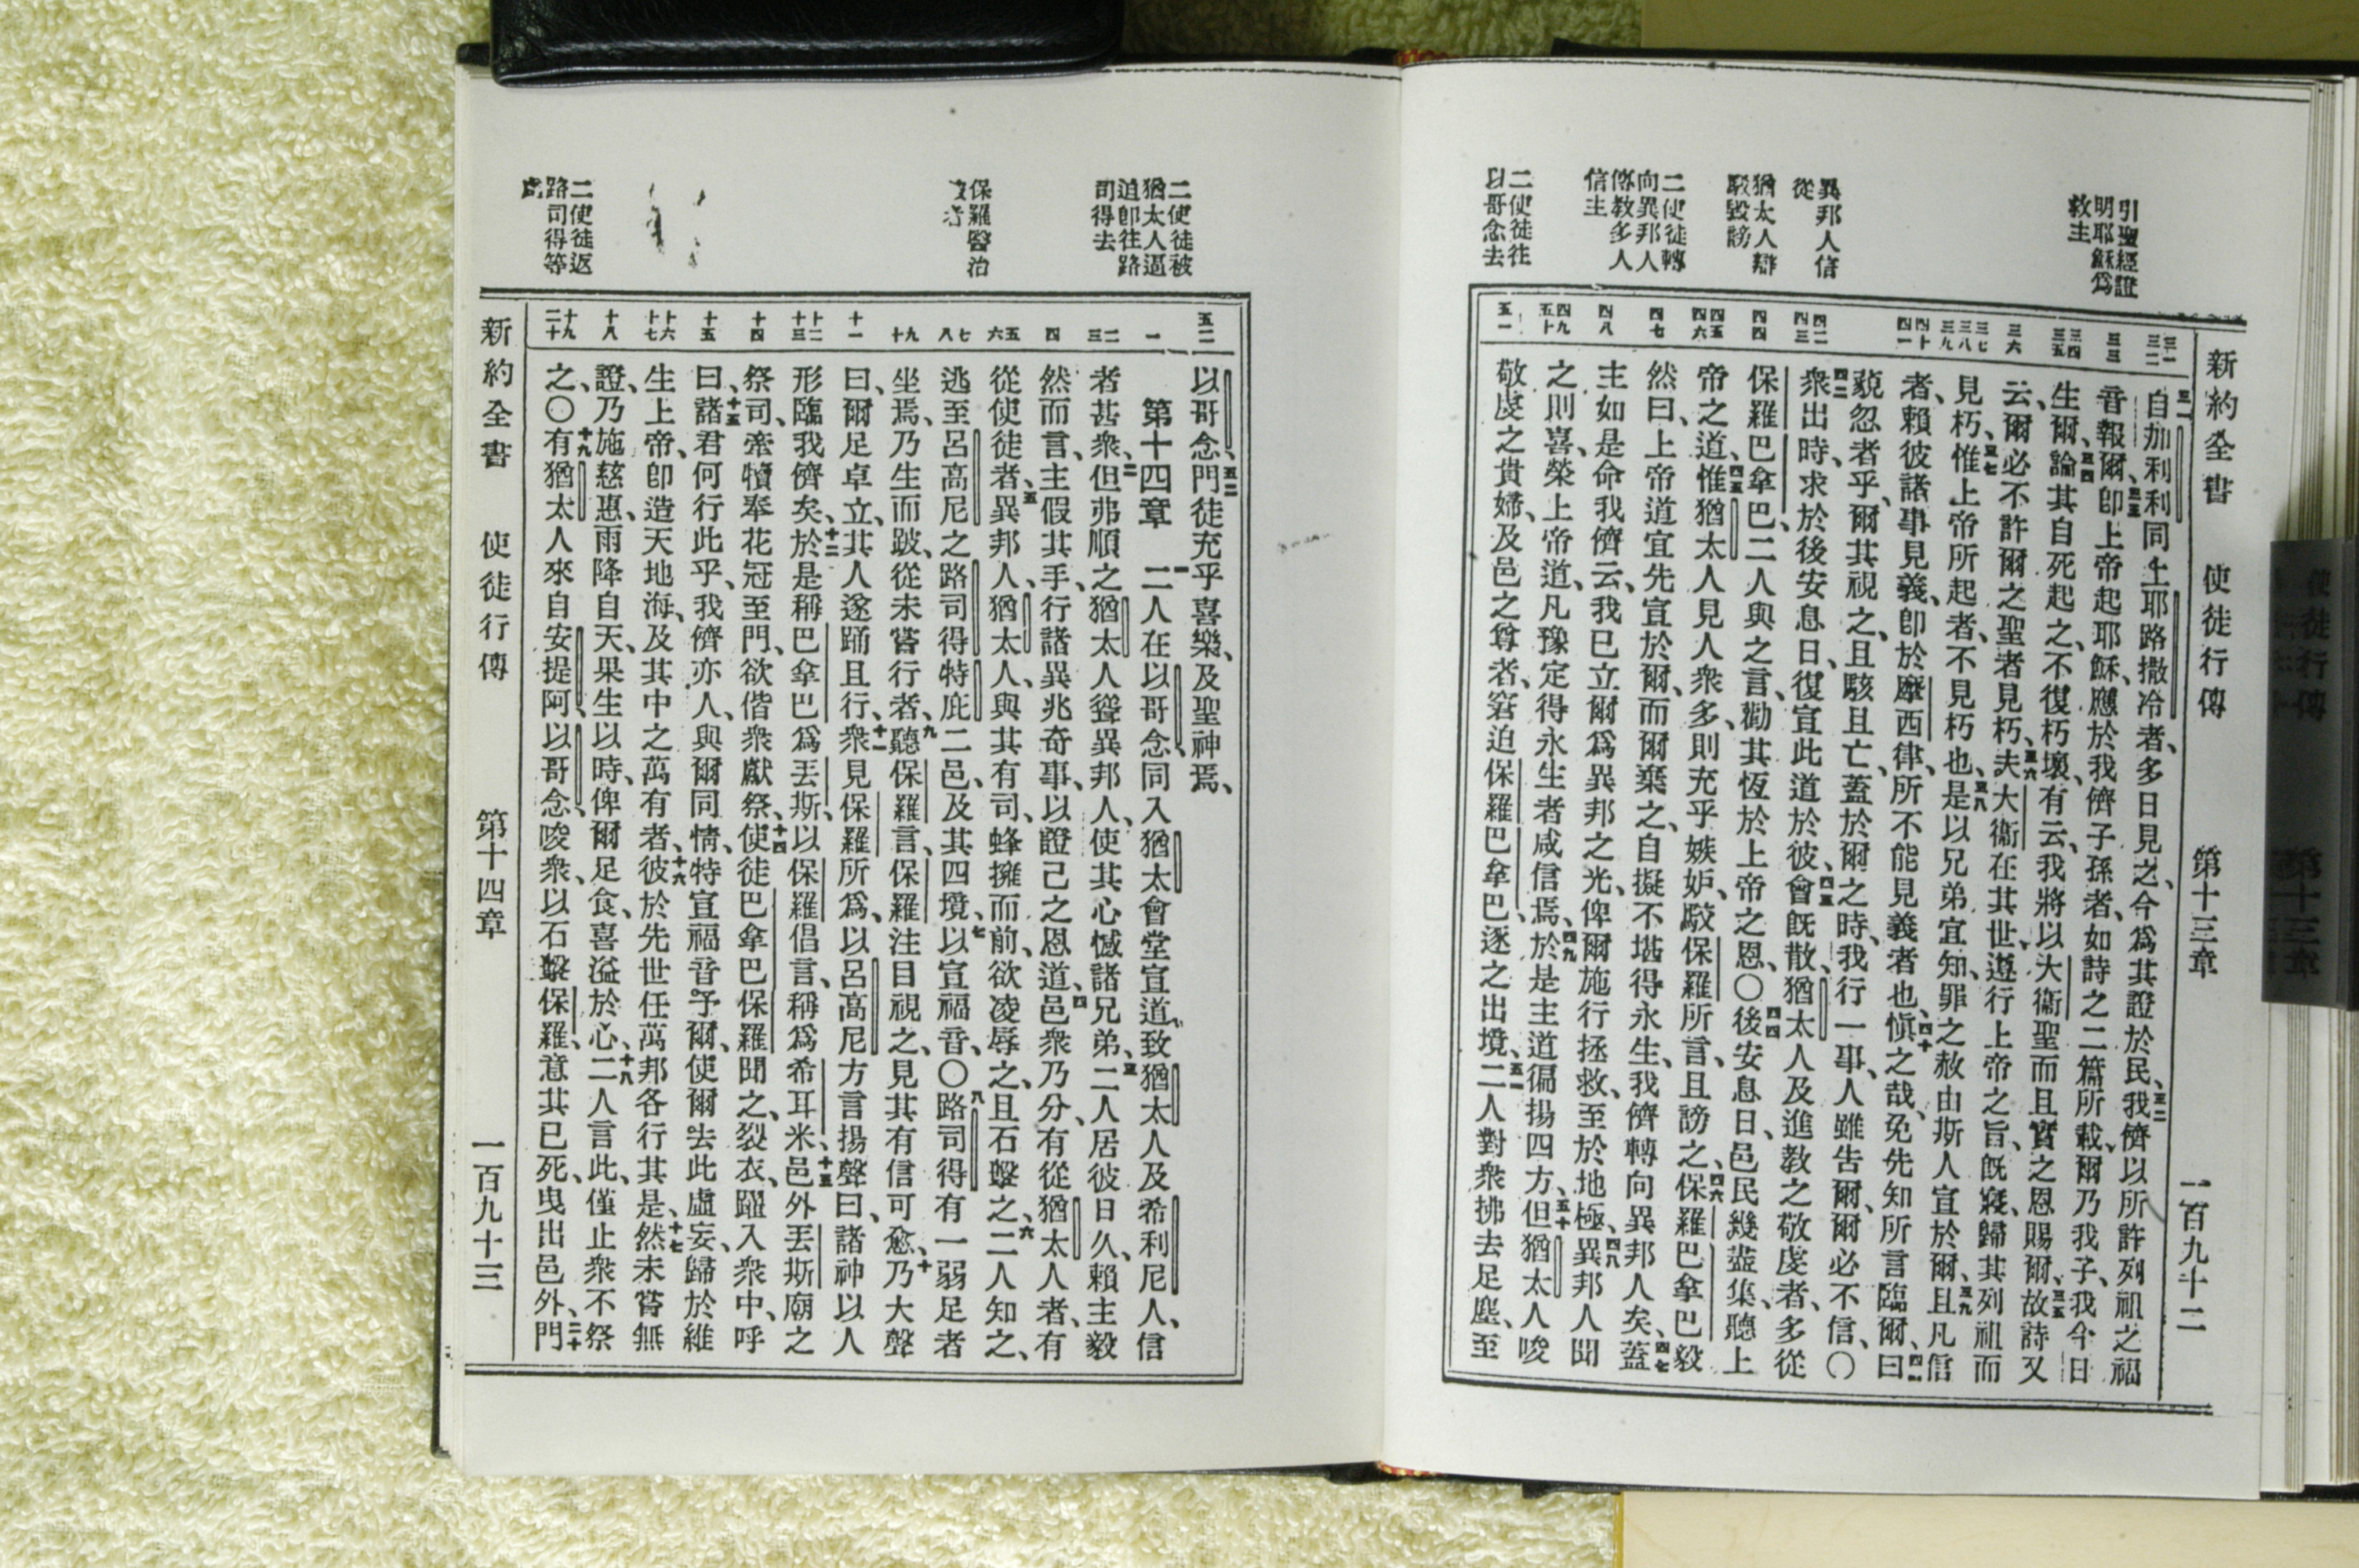 新約全書　使徒行傳　第十三章　一百九十二
引聖經證
明耶穌爲
救主
異邦人信
從
猶太人辯
駁毀謗
二使徒轉
向異邦人
傳教多人
信主
二使徒往
以哥念去
三一 三二 三三 三四 三五 三六 三七 三八 三九 四十 四一 四二 四三 四四 四五 四六 四七 四八 四九 五十 五一
三一自加利利同上耶路撒冷者、多日見之、今爲其證於民、三二我儕以所許列祖之福
音報爾、三三卽上帝起耶穌、應於我儕子孫者、如詩之二篇所載、爾乃我子、我今日
生爾、三四論其自死起之、不復朽壞、有云、我將以大衞聖而且實之恩賜爾、三五故詩又
云、爾必不許爾之聖者見朽、三六夫大衞在其世、遵行上帝之旨、旣寢、歸其列祖而
見朽、三七惟上帝所起者、不見朽也、三八是以兄弟宜知、罪之赦由斯人宣於爾、三九且凡信
者、賴彼諸事見義、卽於摩西律、所不能見義者也、四十愼之哉、免先知所言臨爾、四一曰
藐忽者乎、爾其視之、且駭且亡、蓋於爾之時、我行一事、人雖告爾、爾必不信、〇
四二衆出時、求於後安息日、復宣此道於彼、四三會旣散、猶太人及進敎之敬虔者、多從
保羅巴拿巴、二人與之言、勸其恆於上帝之恩、〇四四後安息日、邑民幾盡集、聽上
帝之道、四五惟猶太人見人衆多、則充乎嫉妒、駁保羅所言、且謗之、四六保羅巴拿巴毅
然曰、上帝道宜先宣於爾、而爾棄之、自擬不堪得永生、我儕轉向異邦人矣、四七蓋
主如是命我儕云、我已立爾爲異邦之光、俾爾施行拯救、至於地極、四八異邦人聞
之則喜、榮上帝道、凡豫定得永生者咸信焉、四九於是主道徧揚四方、五十但猶太人唆
敬虔之貴婦、及邑之尊者、窘迫保羅巴拿巴、逐之出境、五一二人對衆拂去足塵、至
二使徒被
猶太人逼
迫卽往路
司得去
保羅醫治
二使徒返
路司得等
處
五二 一 二 三 四 五 六 七 八 九 十 十一 十二 十三 十四 十五 十六 十七 十八 十九 二十
以哥念、五二門徒充乎喜樂、及聖神焉、
第十四章　一二人在以哥念、同入猶太會堂宣道、致猶太人及希利尼人、信
者甚衆、二但弗順之猶太人、聳異邦人、使其心憾諸兄弟、三二人居彼日久、賴主毅
然而言、主假其手、行諸異兆奇事、以證己之恩道、四邑衆乃分、有從猶太人者、有
從使徒者、五異邦人、猶太人、與其有司、蜂擁而前、欲凌辱之、且石擊之、六二人知之、
逃至呂高尼之路司得、特庇二邑、及其四境、七以宣福音、〇八路司得有一弱足者
坐焉、乃生而跛、從未嘗行者、九聽保羅言、保羅注目視之、見其有信可愈、十乃大聲
曰、爾足卓立、其人遂踊且行、十一衆見保羅所爲、以呂高尼方言揚聲曰、諸神以人
形臨我儕矣、十二於是稱巴拿巴爲丟斯、以保羅倡言、稱爲希耳米、十三邑外丟斯廟之
祭司、牽犢奉花冠至門、欲偕衆獻祭、十四使徒巴拿巴保羅聞之、裂衣、躍入衆中、呼
曰、十五諸君何行此乎、我儕亦人、與爾同情、特宣福音予爾、使爾去此虛妄、歸於維
生上帝、卽造天地海、及其中之萬有者、十六彼於先世任萬邦各行其是、十七然未嘗無
證、乃施慈惠、雨降自天、果生以時、俾爾足食、喜溢於心、十八二人言此、僅止衆不祭
之、〇十九有猶太人來自安提阿、以哥念、唆衆、以石擊保羅、意其已死、曳出邑外、二十門
新約全書　使徒行傳　第十四章　一百九十三